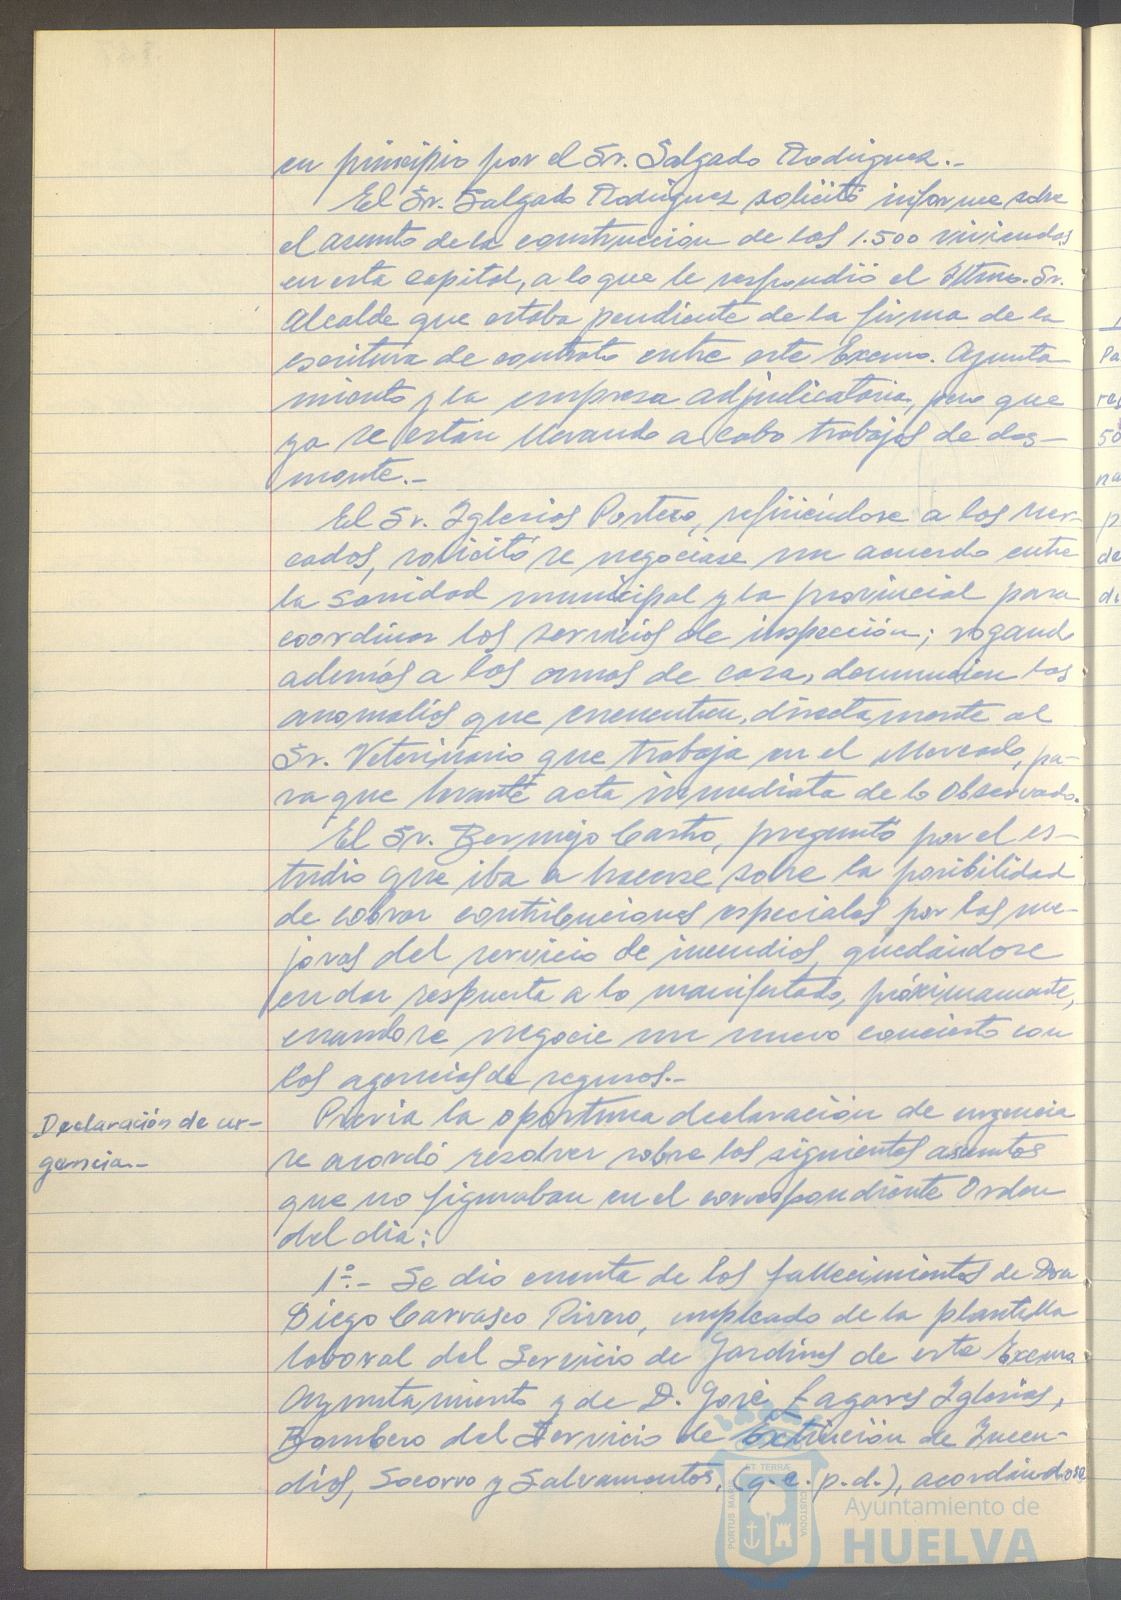 en principio por el Sr. Salgado Rodríguez.-
El Sr. Salgado Rodríguez solicitó informe sobre
el asunto de la construcción de las 1.500 viviendas
en esta capital, a lo que le respondió el Iltmo. Sr.
Alcalde que estaba pendiente de la firma de la
escritura de contrato entre este Excmo. Ayunta-
miento y la empresa adjudicataria, pero que
ya se están llevando a cabo trabajos de des-
monte.-
El Sr. Iglesias Portero, refiriéndose a los mer-
cados, solicitó se negociase un acuerdo entre
la sanidad municipal y la provincial para
coordinar los servicios de inspección; rogando
además a las amas de casa, denuncien las
anomalías que encuentren, directamente al
Sr. Veterinario que trabaja en el Mercado, pa-
ra que levante acta inmediata de lo observado.
El Sr. Bermejo Castro, preguntó por el es-
tudio que iba a hacerse sobre la posibilidad
de cobrar contribuciones especiales por las me-
joras del servicio de incendios, quedándose
en dar respuesta a lo manifestado, próximamente,
cuando se negocie un nuevo concierto con
las agencias de seguros.-
Declaración de ur-
gencia.-
Previa la oportuna declaración de urgencia
se acordó resolver sobre los siguientes asuntos
que no figuraban en el correspondiente Orden
del día:
1º.- Se dio cuenta de los fallecimientos de Don
Diego Carrasco Rivero, empleado de la plantilla
laboral del Servicio de Jardines de este Excmo.
Ayuntamiento y de D. José Lagares Iglesias,
Bombero del Servicio de Extinción de Incen-
dios, Socorro y Salvamentos, (q.e.p.d.), acordándose
PORTUS MARIS ET TERRÆ CUSTODIA
Ayuntamiento de
HUELVA